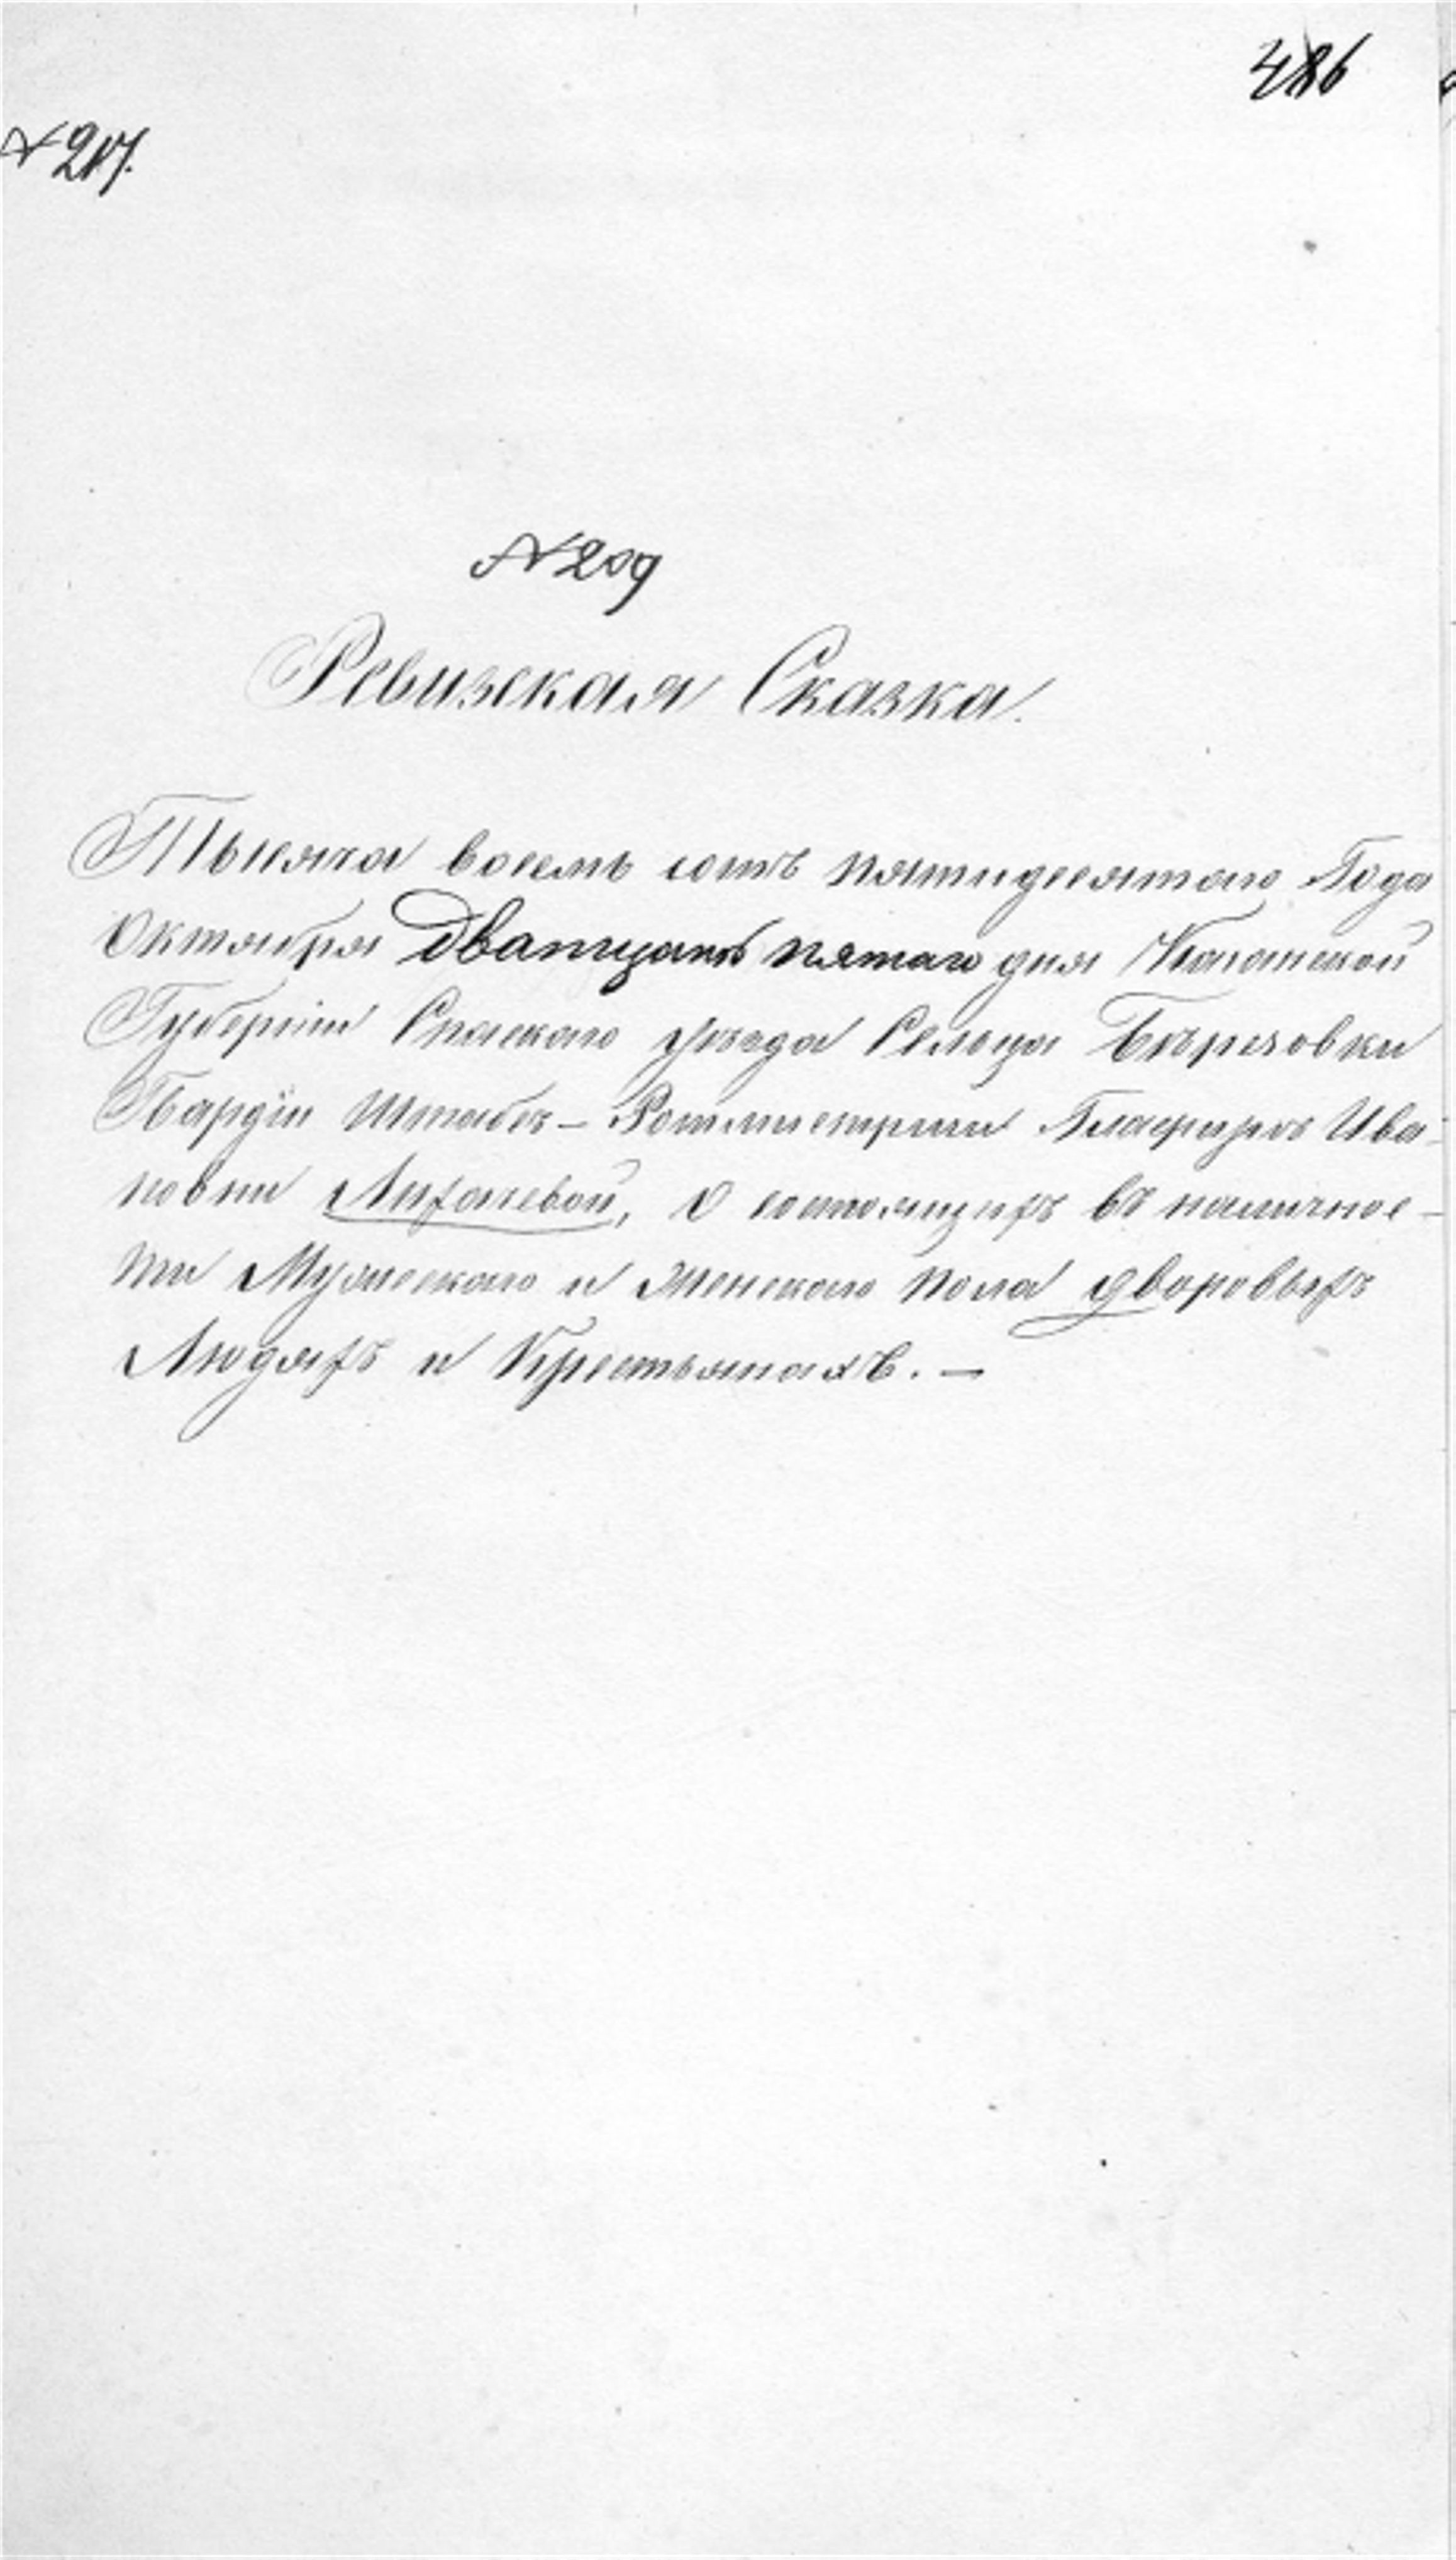 486
№ 217.
№ 209
Ревизская Сказка.
Тысяча восемь сотъ пятидесятаго Года
Октября Дватцать пятаго дня Казанской
Губерніи Спаскаго уѣзда Сельца Бѣрезовки
Гвардіи Штабъ-Ротмистрши Глафиры Ива-
новны Лихачевой, О состоящихъ въ наличнос-
ти Мужескаго и Женскаго пола дворовыхъ
Людяхъ и Крестьянахъ. —